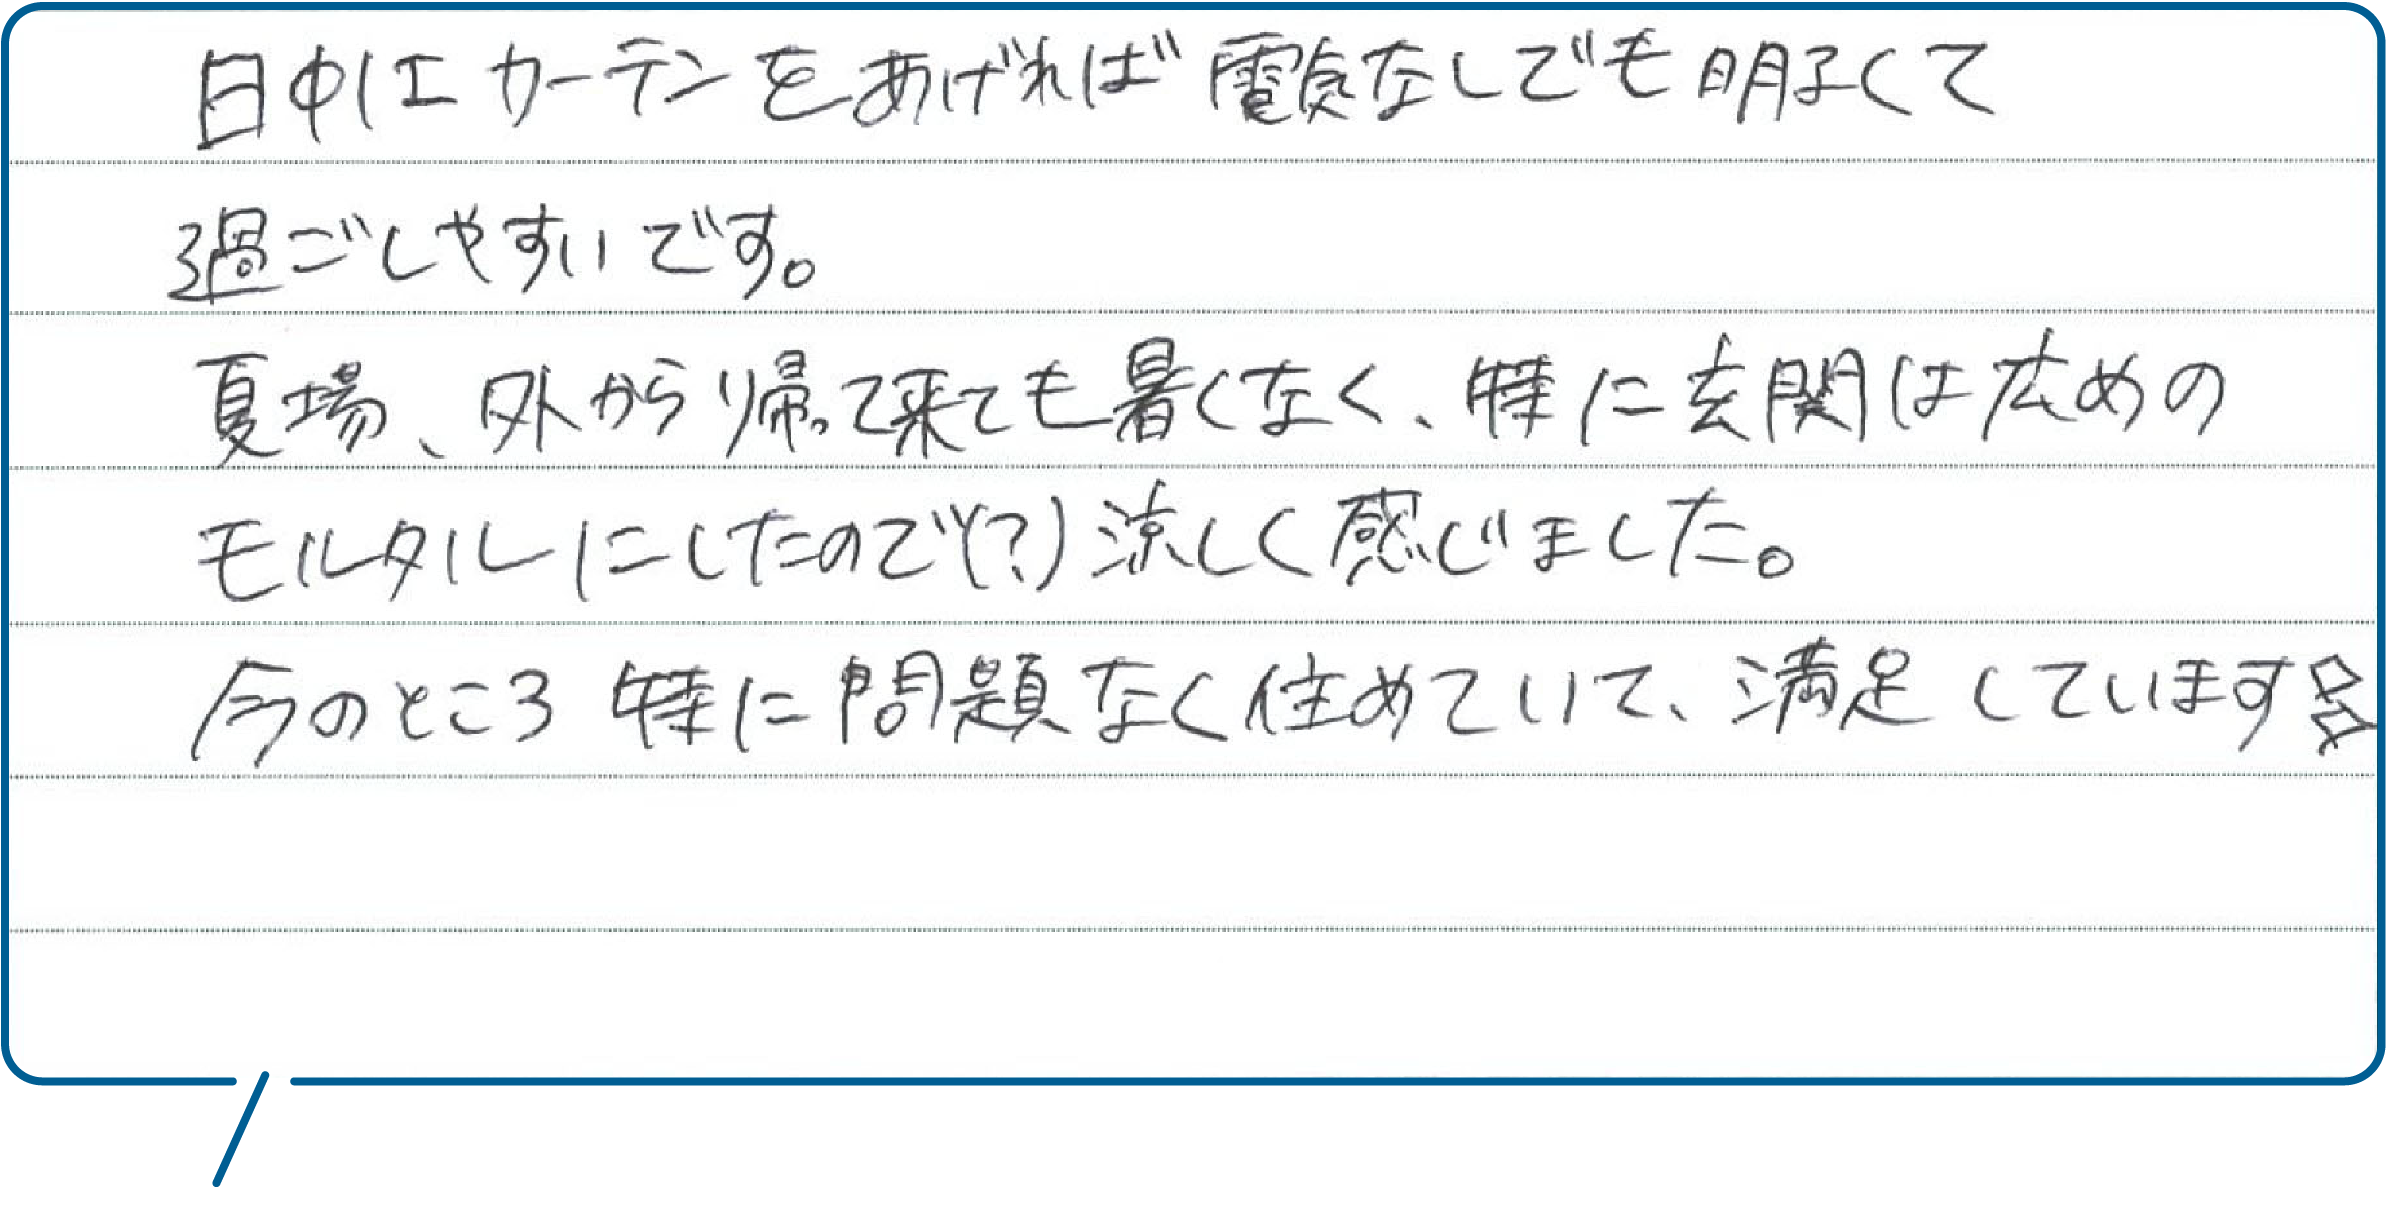 日中はカーテンをあければ電気なしでも明るくて
過ごしやすいです。
夏場、外から帰って来ても暑くなく、特に玄関は広めの
モルタルにしたので(?)涼しく感じました。
今のところ特に問題なく住めていて、満足しています